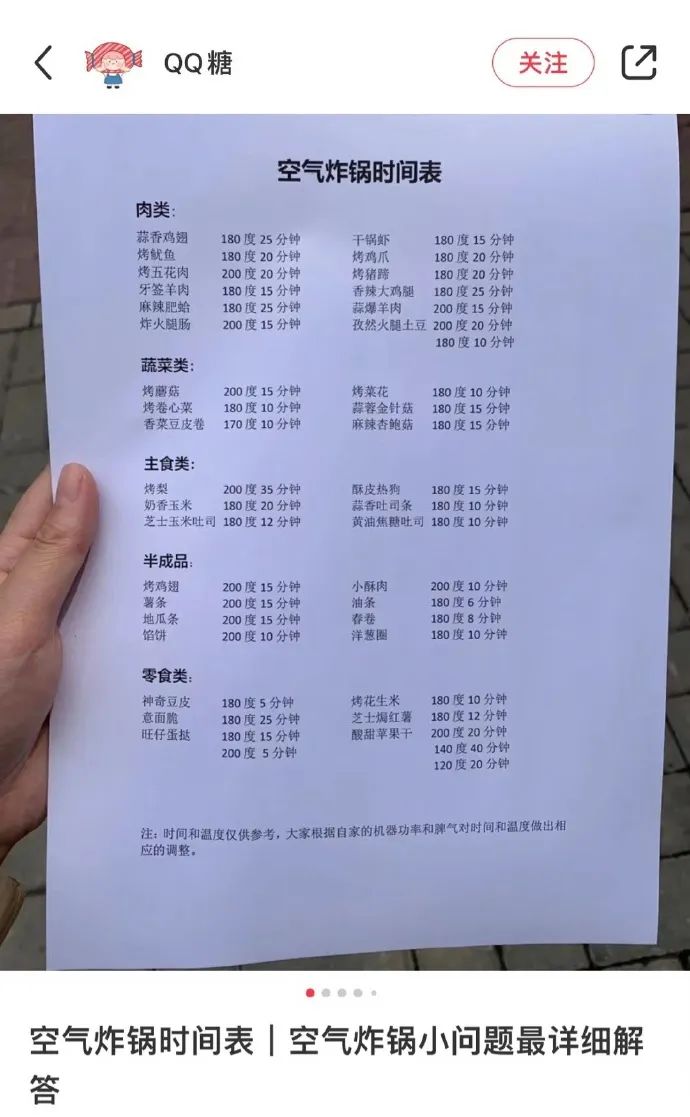 QQ糖
关注
空气炸锅时间表
肉类：
蒜香鸡翅 180 度 25 分钟 干锅虾 180 度 15 分钟
烤鱿鱼 180 度 20 分钟 烤鸡爪 180 度 20 分钟
烤五花肉 200 度 20 分钟 烤猪蹄 180 度 20 分钟
牙签羊肉 180 度 15 分钟 香辣大鸡腿 180 度 25 分钟
麻辣肥蛤 180 度 25 分钟 蒜爆羊肉 200 度 15 分钟
炸火腿肠 200 度 15 分钟 孜然火腿土豆 200 度 20 分钟
180 度 10 分钟
蔬菜类：
烤蘑菇 200 度 15 分钟 烤菜花 180 度 10 分钟
烤卷心菜 180 度 10 分钟 蒜蓉金针菇 180 度 15 分钟
香菜豆皮卷 170 度 10 分钟 麻辣杏鲍菇 180 度 15 分钟
主食类：
烤梨 200 度 35 分钟 酥皮热狗 180 度 15 分钟
奶香玉米 180 度 20 分钟 蒜香吐司条 180 度 10 分钟
芝士玉米吐司 180 度 12 分钟 黄油焦糖吐司 180 度 10 分钟
半成品：
烤鸡翅 200 度 15 分钟 小酥肉 200 度 10 分钟
薯条 200 度 15 分钟 油条 180 度 6 分钟
地瓜条 200 度 15 分钟 春卷 180 度 8 分钟
馅饼 200 度 10 分钟 洋葱圈 180 度 10 分钟
零食类：
神奇豆皮 180 度 5 分钟 烤花生米 180 度 10 分钟
意面脆 180 度 25 分钟 芝士焗红薯 180 度 12 分钟
旺仔蛋挞 180 度 15 分钟 酸甜苹果干 200 度 20 分钟
200 度 5 分钟 140 度 40 分钟
120 度 20 分钟
注：时间和温度仅供参考，大家根据自家的机器功率和脾气对时间和温度做出相
应的调整。
空气炸锅时间表｜空气炸锅小问题最详细解
答